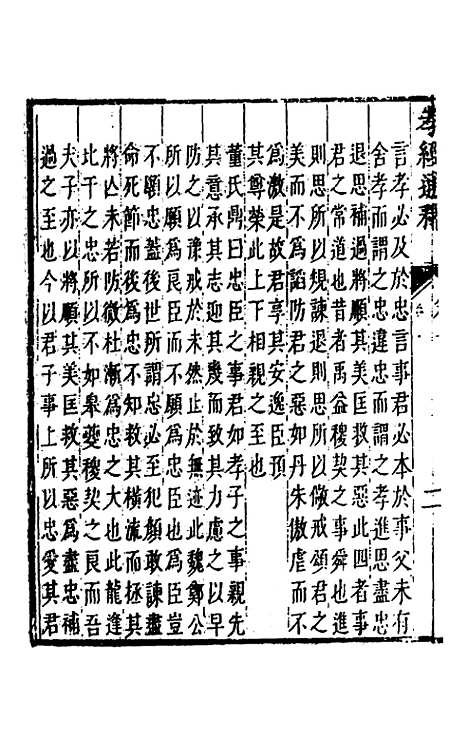 孝經通釋
二
言孝必及於忠言事君必本於事父未有
舍孝而謂之忠違忠而謂之孝進思盡忠
退思補過將順其美匡救其惡此四者事
君之常道也昔者禹益稷契之事舜也進
則思所以規諫退則思所以儆戒頌君之
美而不為諂防君之惡如丹朱傲虐而不
為激是故君享其安逸臣預
其尊榮此上下相親之至也
董氏鼎曰忠臣之事君如孝子之事親先
其意承其志迎其幾而致其力慮之以早
防之以豫戒於未然止於無迹此魏鄭公
所以願為良臣而不願為忠臣也為臣豈
不願忠蓋後世所謂忠必至犯顏敢諫盡
命死節而後為忠不知救其橫流而拯其
將亾未若防微杜漸為忠之大也此龍逄
比干之忠所以不如皋夔稷契之良而吾
夫子亦以將順其美匡救其惡為盡忠補
過之至也今以君子事上所以忠愛其君